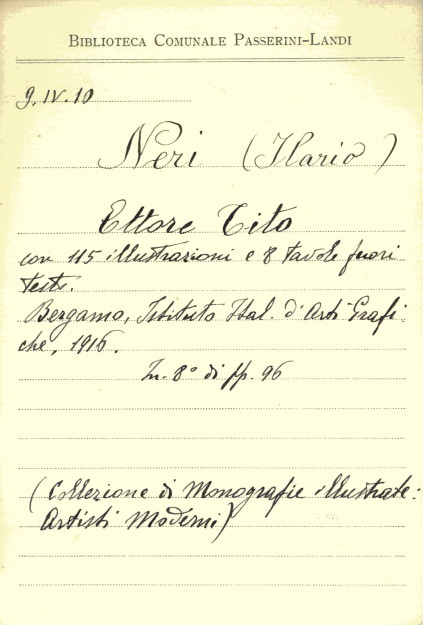 BIBLIOTECA COMUNALE PASSERINI-LANDI
9.IV.10
Neri (Ilario)
Ettore Tito
con 115 illustrazioni e 8 tavole fuori
testo.
Bergamo, Istituto Ital. d'Arti Grafi-
che, 1916.
In-8° di pp. 96
(Collezione di Monografie illustrate:
Artisti Moderni)